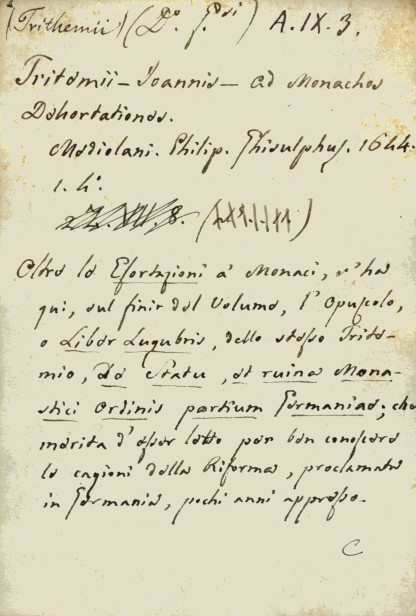 (Trithemii) (Dº. Gsi) A. IX. 3.
Tritemii - Joannis - ad Monachos
Dehortationes.
Mediolani. Philip. Ghisulphuſ. 1644.
1. 4º.
Oltre le Eſortazioni a' Monaci, v'ha
qui, sul finir del Volume, l'Opuſcolo,
o Liber Lugubris, dello steſso Trite-
mio, De Statu, et ruina Mona-
stici Ordinis partium Germaniae; che
merita d'eſser letto per ben conoſcere
le cagioni della Riforma, proclamata
in Germania, pochi anni appreſso.
C